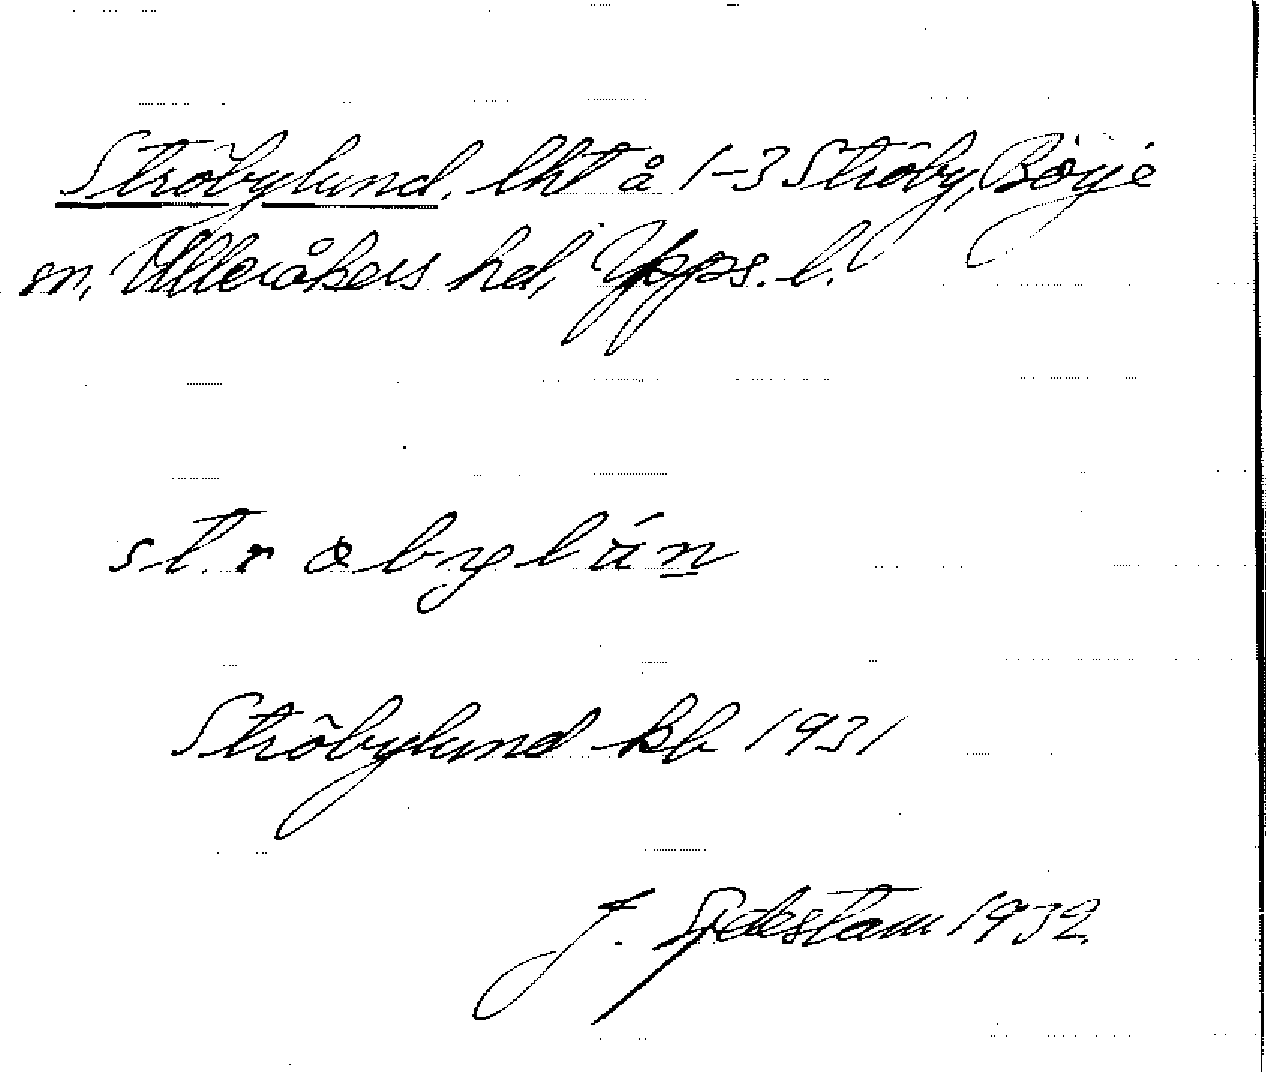 Ströbylund, lht å 1-3 Ströby, Börje
sn, Ulleråkers hd, Upps. l.
strøbylún
Ströbylund kb 1931
J. Sjdestam 1932